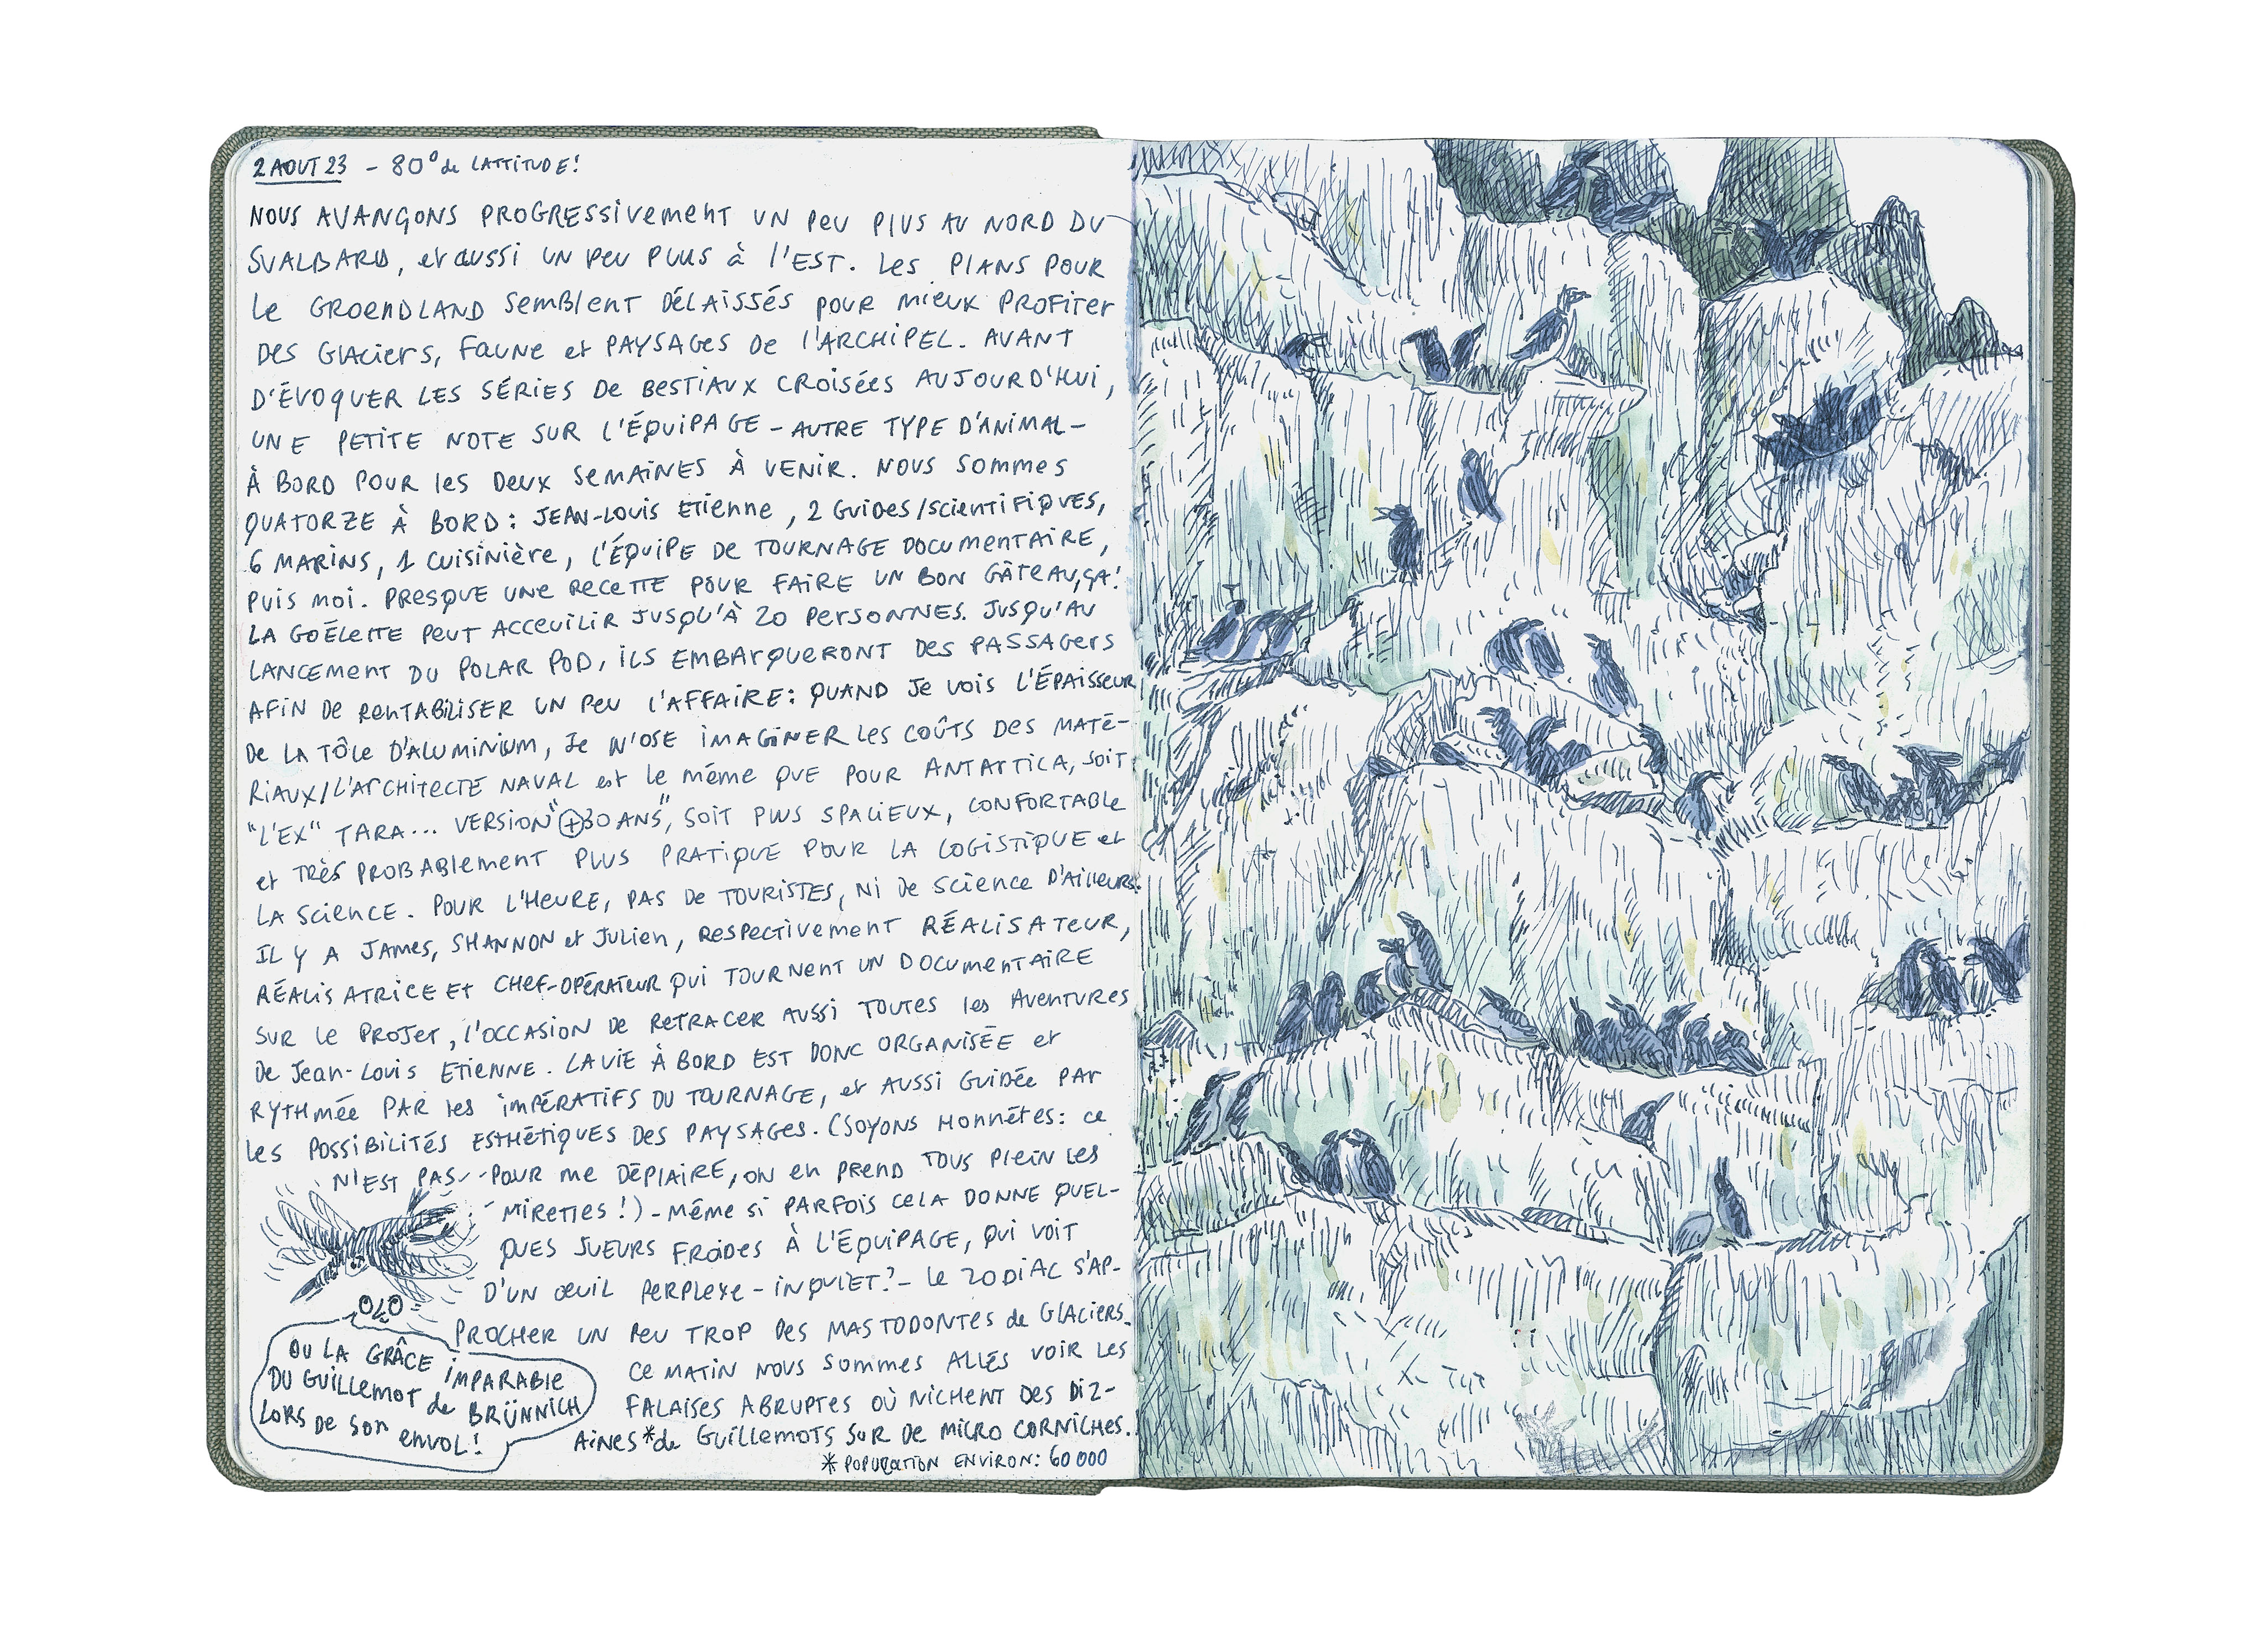 2 AOUT 23 - 80° de LATTITUDE!
NOUS AVANÇONS PROGRESSIVEMENT UN PEU PLUS AU NORD DU
SVALBARD, et aussi UN PEU PLUS à l'EST. Les PLANS POUR
Le GROENDLAND SEMBLENT DÉLAISSÉS POUR MIEUX PROFITER
DES GLACIERS, FAUNE et PAYSAGES DE L'ARCHIPEL. AVANT
D'ÉVOQUER LES SÉRIES DE BESTIAUX CROISÉES AUJOURD'HUI,
UNE PETITE NOTE SUR L'ÉQUIPAGE - AUTRE TYPE D'ANIMAL -
À BORD POUR les DEUX SEMAINES À VENIR. NOUS SOMMES
QUATORZE À BORD : JEAN-LOUIS ETIENNE, 2 GUIDES/SCIENTIFIQUES,
6 MARINS, 1 CUISINIÈRE, L'ÉQUIPE DE TOURNAGE DOCUMENTAIRE,
PUIS MOI. PRESQUE UNE RECETTE POUR FAIRE UN BON GÂTEAU, ÇA!
LA GOÉLETTE PEUT ACCEUILIR JUSQU'À 20 PERSONNES. JUSQU'AU
LANCEMENT DU POLAR POD, ILS EMBARQUERONT DES PASSAGERS
AFIN DE RENTABILISER UN PEU L'AFFAIRE: QUAND JE VOIS L'ÉPAISSEUR
DE LA TÔLE D'ALUMINIUM, JE N'OSE IMAGINER LES COÛTS DES MATÉ-
RIAUX/L'ARCHITECTE NAVAL est le même QUE POUR ANTARTICA, SOIT
"L'EX" TARA... VERSION "+30 ANS", SOIT PLUS SPACIEUX, CONFORTABLE
et TRÈS PROBABLEMENT PLUS PRATIQUE POUR LA LOGISTIQUE et
LA SCIENCE. POUR L'HEURE, PAS DE TOURISTES, NI DE SCIENCE D'AILLEURS.
IL Y A JAMES, SHANNON et JULIEN, RESPECTIVEMENT RÉALISATEUR,
RÉALISATRICE ET CHEF-OPÉRATEUR QUI TOURNENT UN DOCUMENTAIRE
SUR LE PROJET, L'OCCASION DE RETRACER AUSSI TOUTES les AVENTURES
DE JEAN-LOUIS ETIENNE. LA VIE À BORD EST DONC ORGANISÉE et
RYTHMÉE PAR les IMPÉRATIFS DU TOURNAGE, et AUSSI GUIDÉE PAR
les POSSIBILITÉS ESTHÉTIQUES DES PAYSAGES. (SOYONS HONNÊTES: CE
N'EST PAS POUR ME DÉPLAIRE, ON en PREND TOUS PLEIN LES
MIRETTES!) - MÊME SI PARFOIS CELA DONNE QUEL-
QUES SUEURS FROIDES À L'ÉQUIPAGE, QUI VOIT
D'UN ŒUIL PERPLEXE - INQUIET? - LE ZODIAC S'AP-
PROCHER UN PEU TROP DES MASTODONTES de GLACIERS.
CE MATIN NOUS SOMMES ALLÉS VOIR LES
FALAISES ABRUPTES OÙ NICHENT DES DIZ-
AINES* de GUILLEMOTS SUR DE MICRO CORNICHES.
* POPULATION ENVIRON: 60 000
OU LA GRÂCE IMPARABLE
DU GUILLEMOT de BRÜNNICH
LORS DE SON ENVOL!